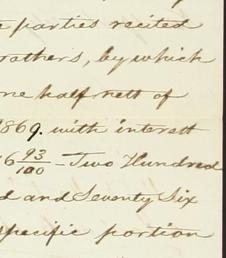 e parties recited
rothers, by which
ne half nett of
1869. with interest
6 93/100 - Two Hundred
d and Seventy Six
specific portion